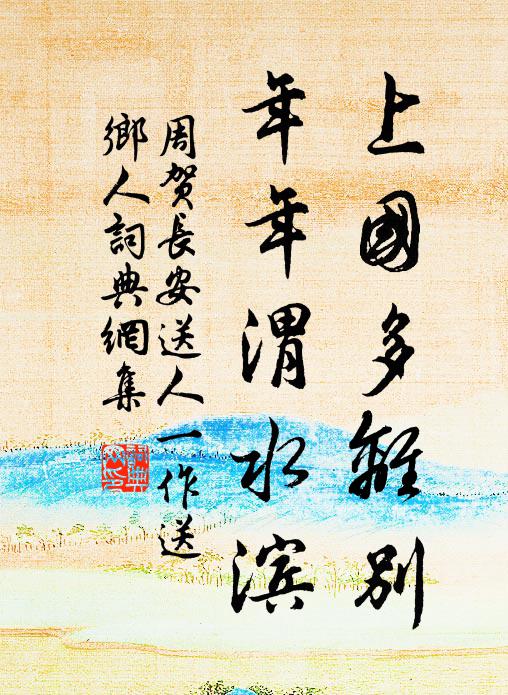 上國多離別
年年渭水濱
周贺長安送人一作送
鄉人詞典網集